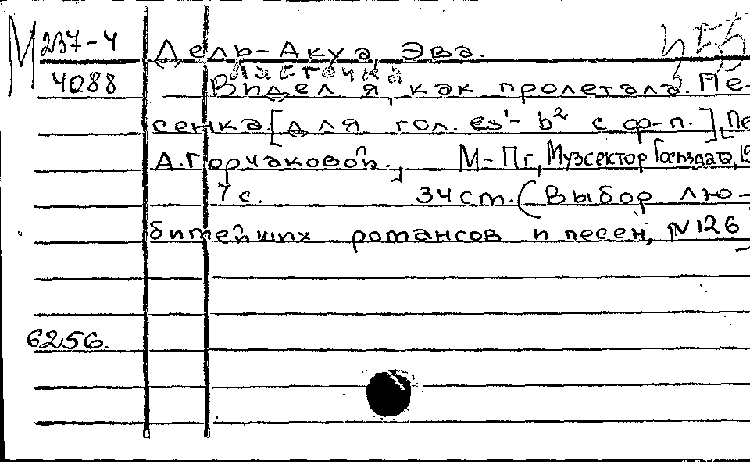 М 237-4
4088
Дель-Акуа, Эва.
Ласточка
Видел я, как пролетала. Пе-
сенка [для гол. es¹- b² с ф-п.], Пе
А. Горчаковой., М-Пг, Музсектор Госиздата, 19
7 с. 34 ст. (Выбор лю-
битейших романсов и песен, № 126
6256.